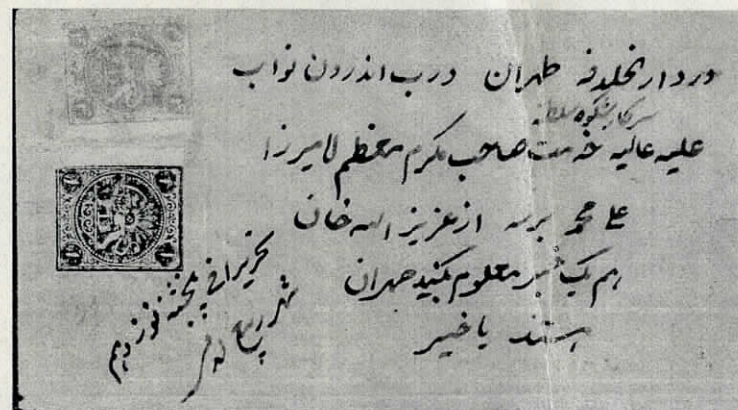 در دارالخلافه طهران درب اندرون نواب
علیه عالیه خدمت صاحب مکرم معظم میرزا
علی محمد برسد از عزیز الله خان
معلوم کنید طهران
هستند یا خیر
تحریرا فی پنجشنبه نوزدهم
شهر ربیع